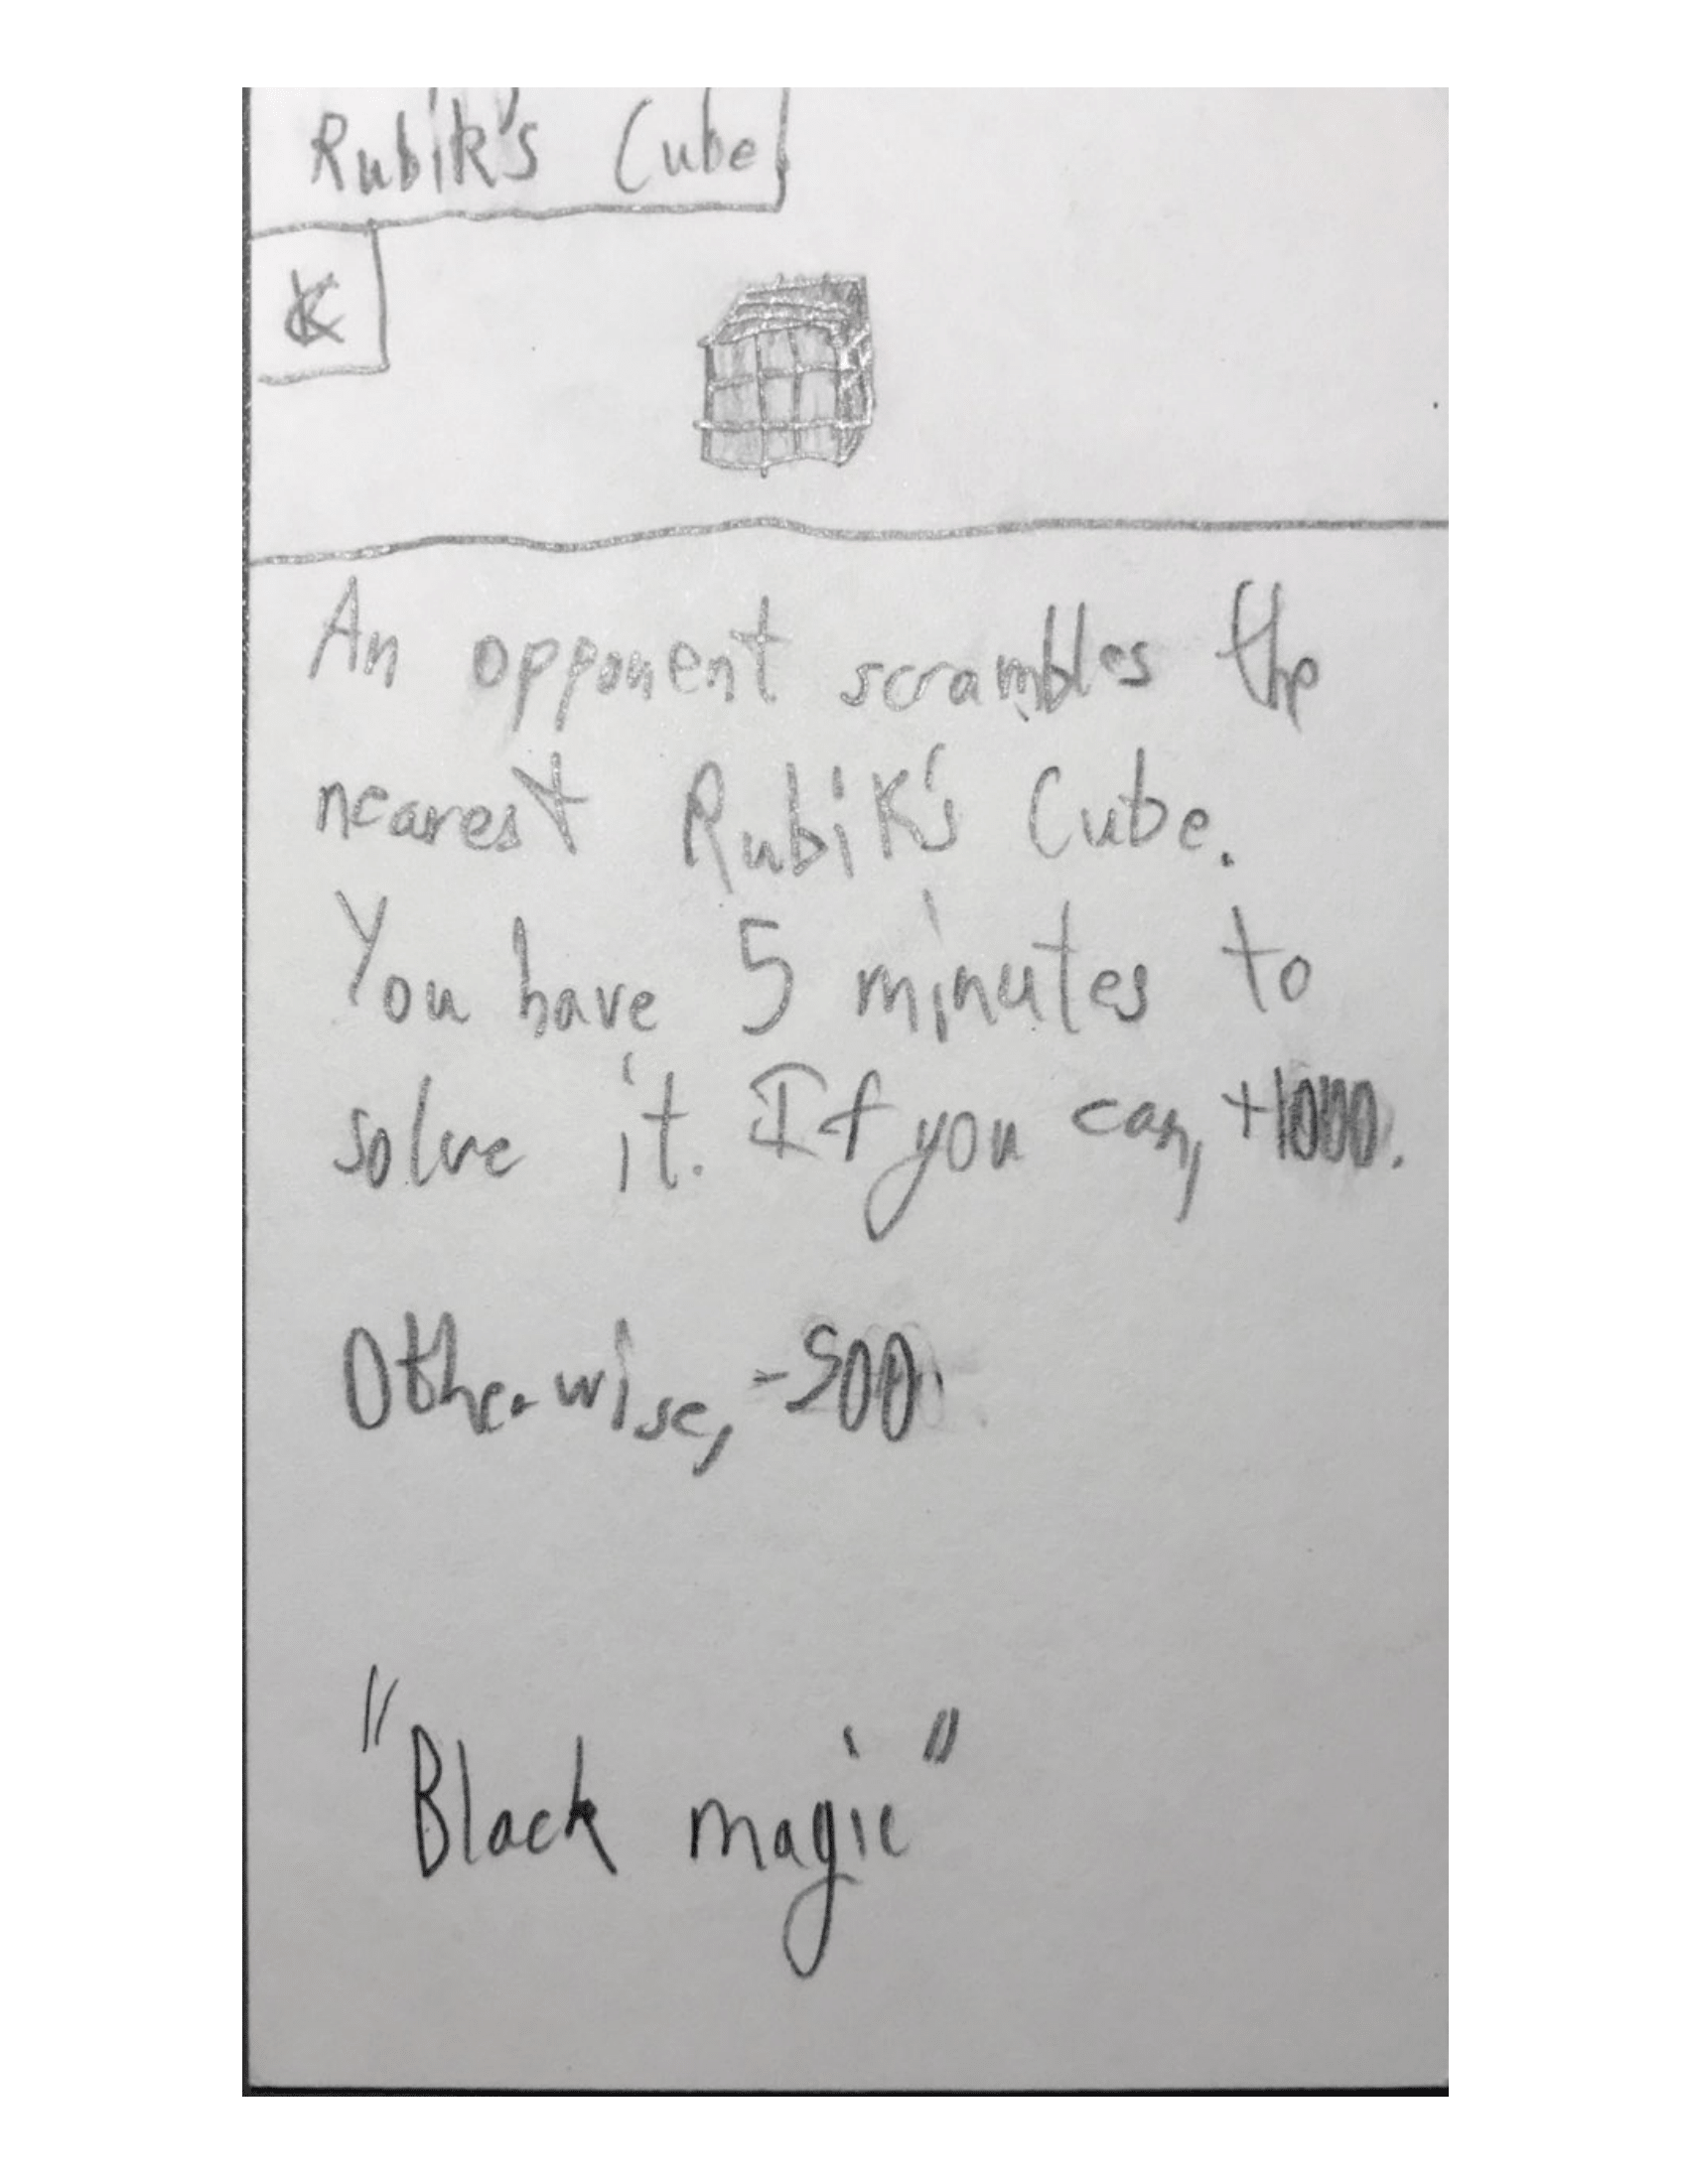 Rubik's Cube
K
An opponent scrambles the
nearest Rubik's Cube.
You have 5 minutes to
solve it. If you can, +1000.
Otherwise, -500.
"Black magic"